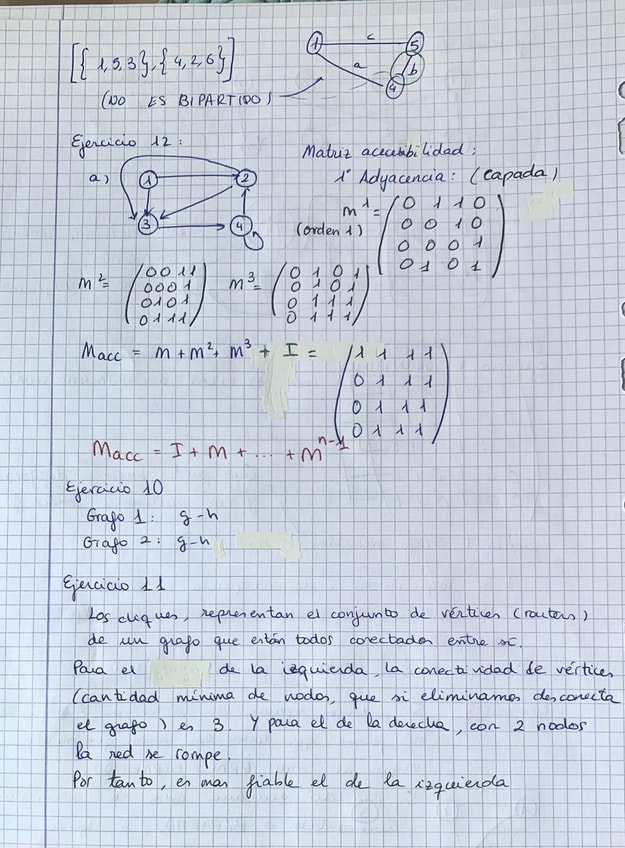 [{1,5,3},{4,2,6}]
(NO ES BIPARTIDO)
1 c 5
a b
4
Ejercicio 12:
a) 1 2
3 4
Matriz accesibilidad:
1º Adyacencia: (capada)
m¹ = (orden 1)
0 1 1 0
0 0 1 0
0 0 0 1
0 1 0 1
m² =
0 0 1 1
0 0 0 1
0 1 0 1
0 1 1 1
m³ =
0 1 0 1
0 1 0 1
0 1 1 1
0 1 1 1
Macc = m + m² + m³ + I =
1 1 1 1
0 1 1 1
0 1 1 1
0 1 1 1
Macc = I + m + ... + mⁿ⁻¹
Ejercicio 10
Grafo 1: g-h
Grafo 2: g-h
Ejercicio 11
Los cliques, representan el conjunto de vértices (routers)
de un grafo que están todos conectados entre sí.
Para el de la izquierda, la conectividad de vértices
(cantidad mínima de nodos, que si eliminamos desconecta
el grafo) es 3. Y para el de la derecha, con 2 nodos
la red se rompe.
Por tanto, es mas fiable el de la izquierda